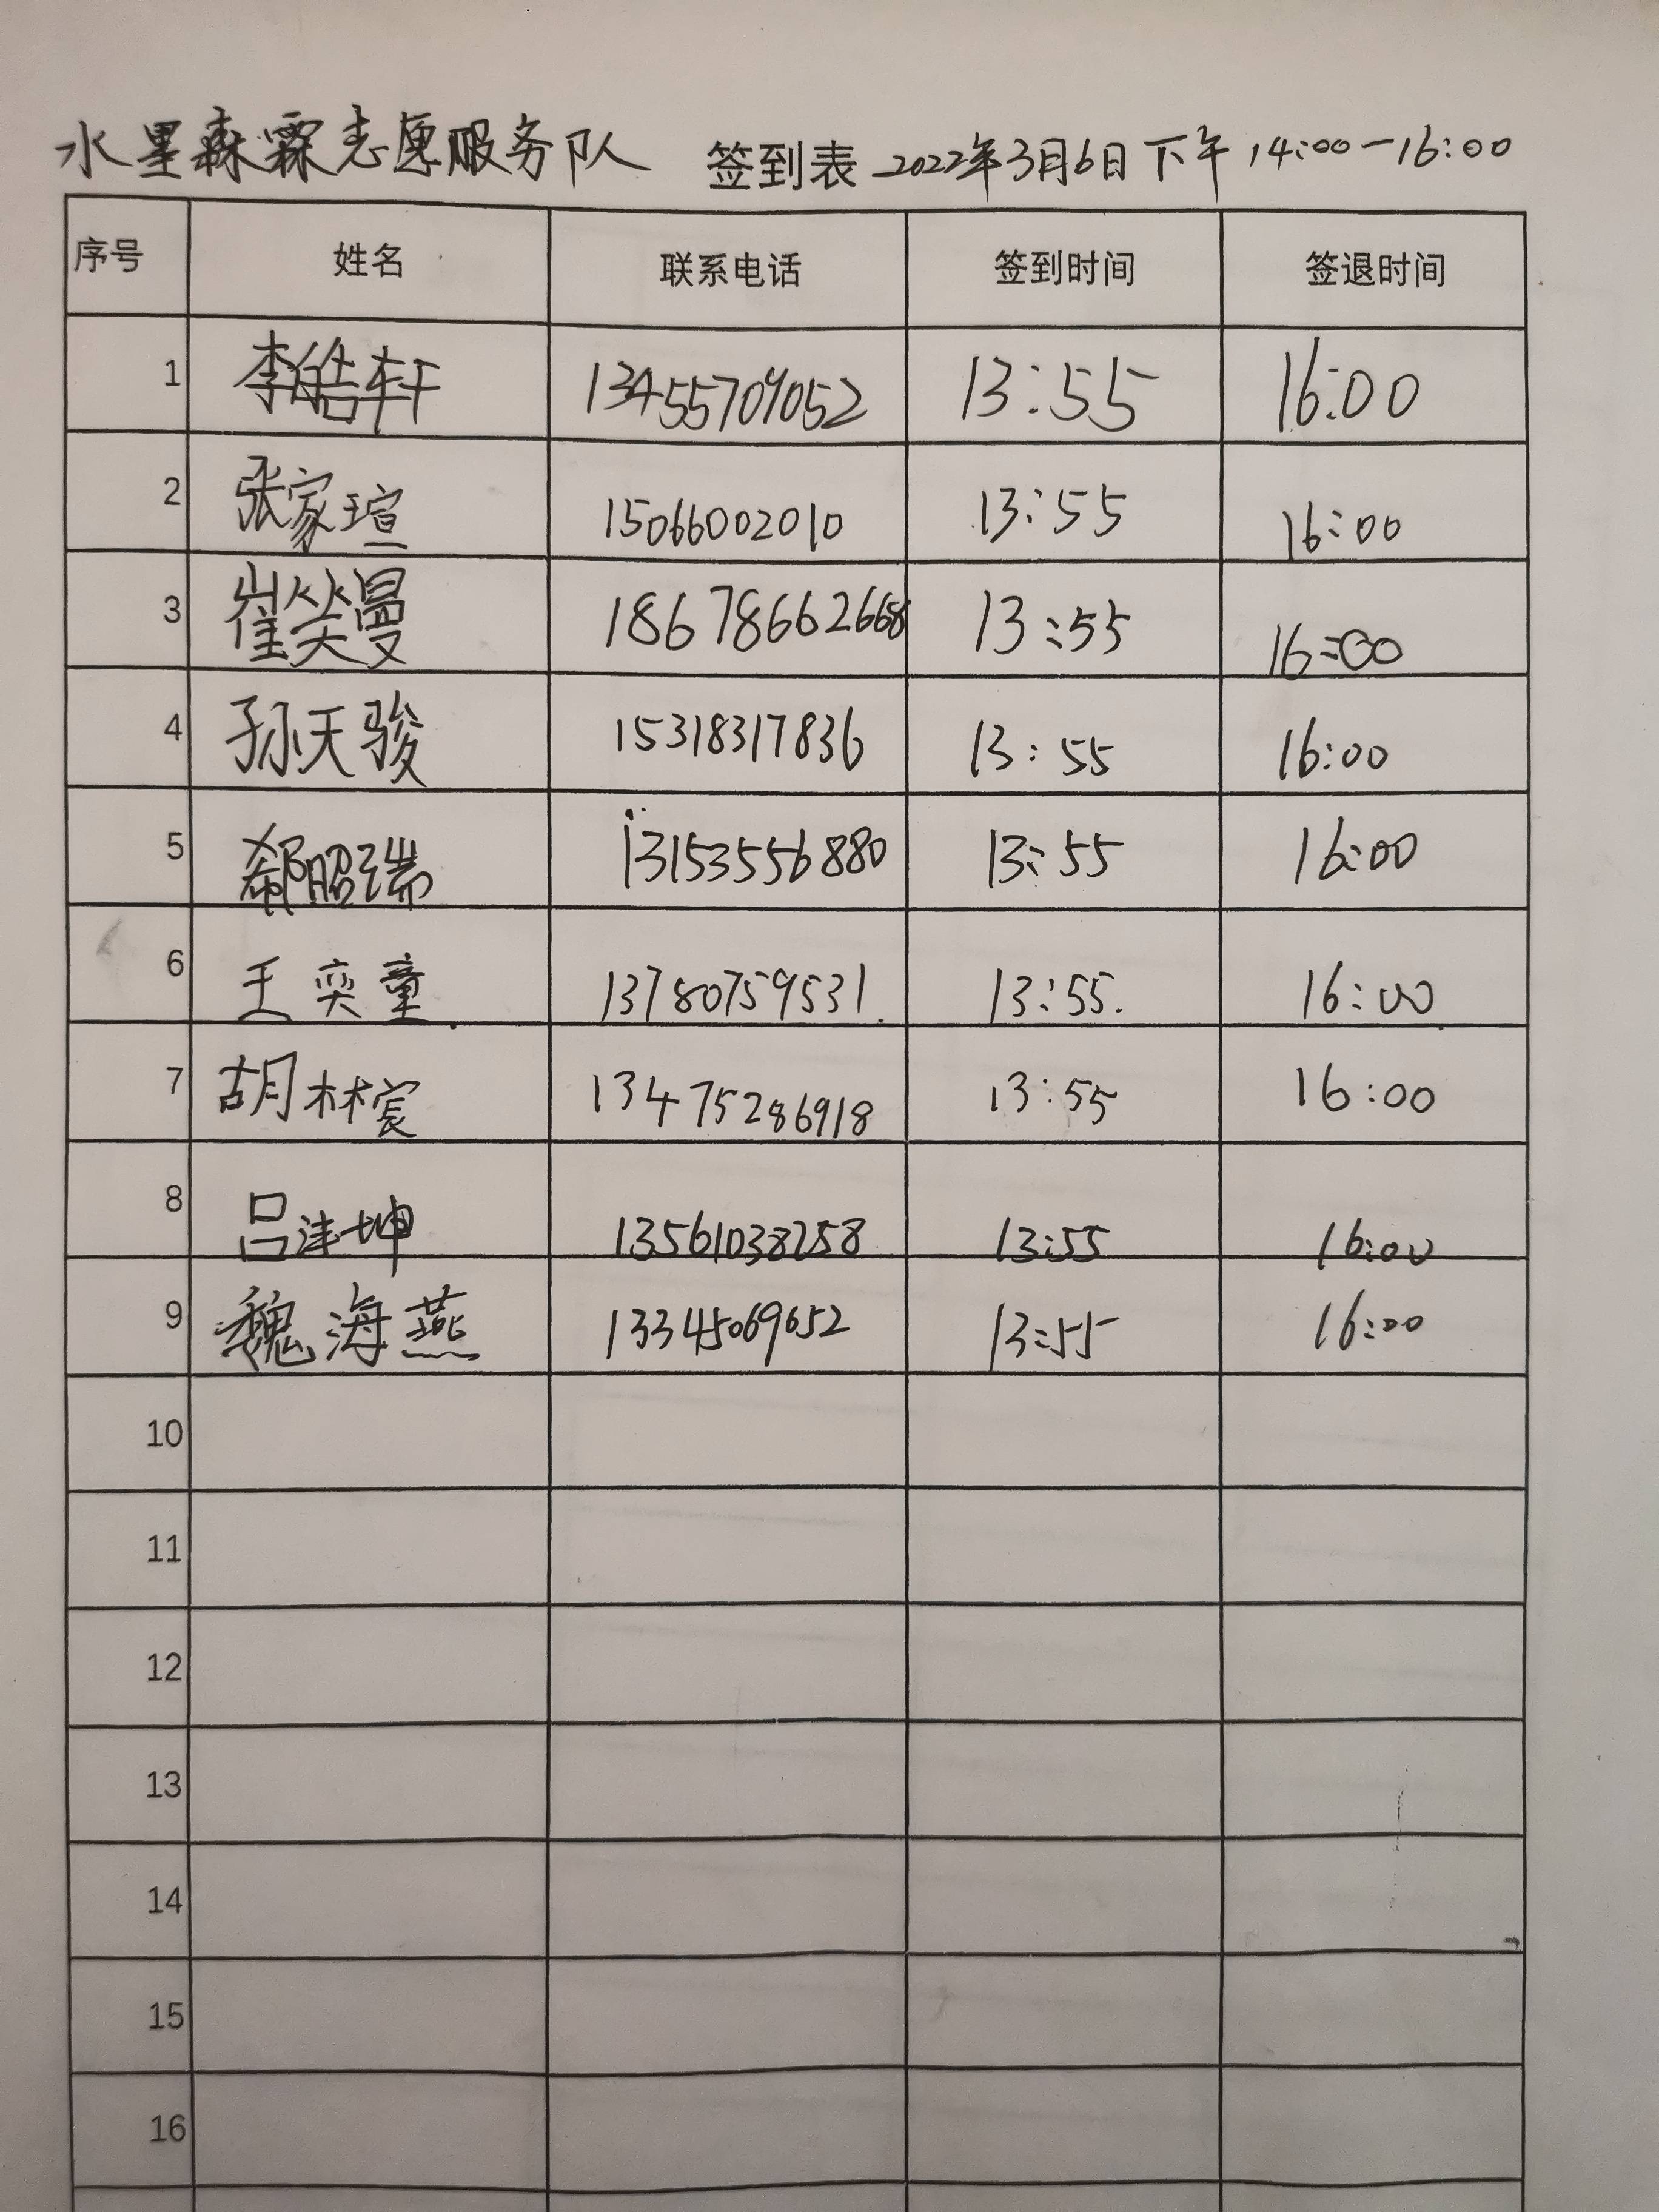 水星森霖志愿服务队 签到表 2022年3月6日下午14:00-16:00
序号 姓名 联系电话 签到时间 签退时间
1 李皓轩 13455709052 13:55 16:00
2 张家瑄 15066002010 13:55 16:00
3 崔筴曼 18678662668 13:55 16:00
4 孙天骏 15318317836 13:55 16:00
5 郗昭瑞 13153556880 13:55 16:00
6 王奕童 13780759531 13:55 16:00
7 胡林宸 13475286918 13:55 16:00
8 吕沣坤 13561038258 13:55 16:00
9 魏海燕 13345069652 13:55 16:00
10
11
12
13
14
15
16